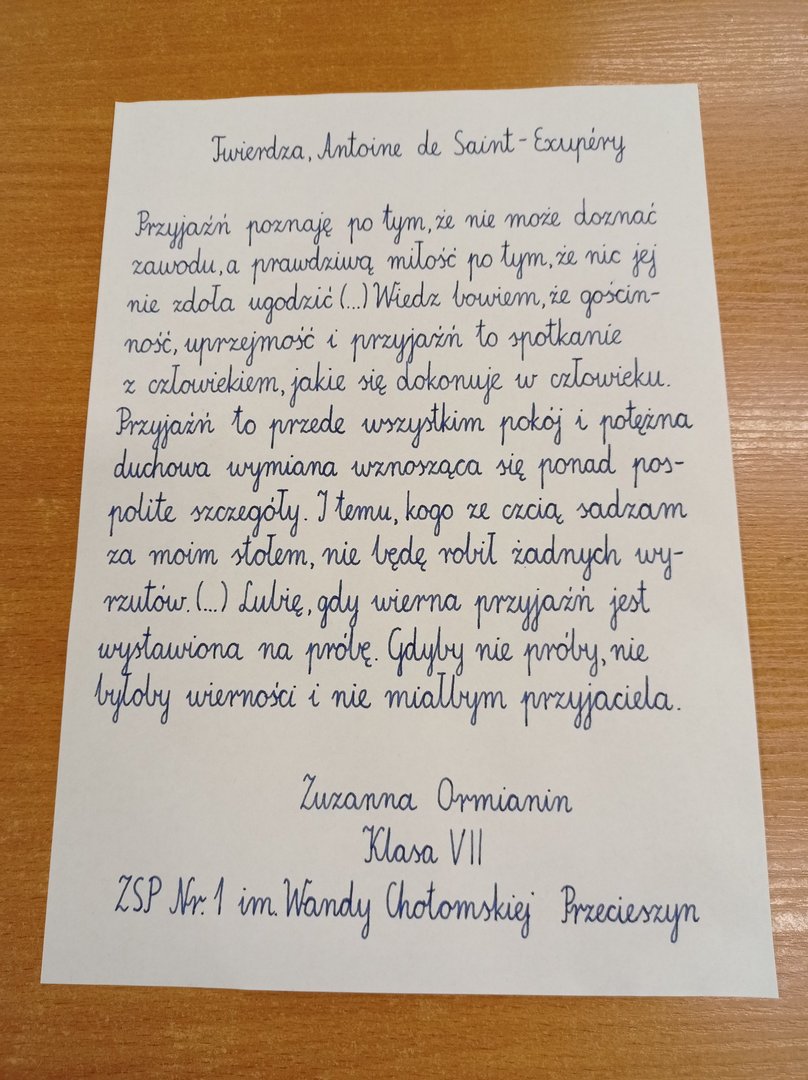 Twierdza, Antoine de Saint-Exupéry
Przyjaźń poznaję po tym, że nie może doznać
zawodu, a prawdziwą miłość po tym, że nic jej
nie zdoła ugodzić (...) Wiedz bowiem, że gościn-
ność, uprzejmość i przyjaźń to spotkanie
z człowiekiem, jakie się dokonuje w człowieku.
Przyjaźń to przede wszystkim pokój i potężna
duchowa wymiana wznosząca się ponad pos-
polite szczegóły. I temu, kogo ze czcią sadzam
za moim stołem, nie będę robił żadnych wy-
rzutów. (...) Lubię, gdy wierna przyjaźń jest
wystawiona na próbę. Gdyby nie próby, nie
byłoby wierności i nie miałbym przyjaciela.
Zuzanna Ormianin
Klasa VII
ZSP Nr. 1 im. Wandy Chotomskiej Przecieszyn